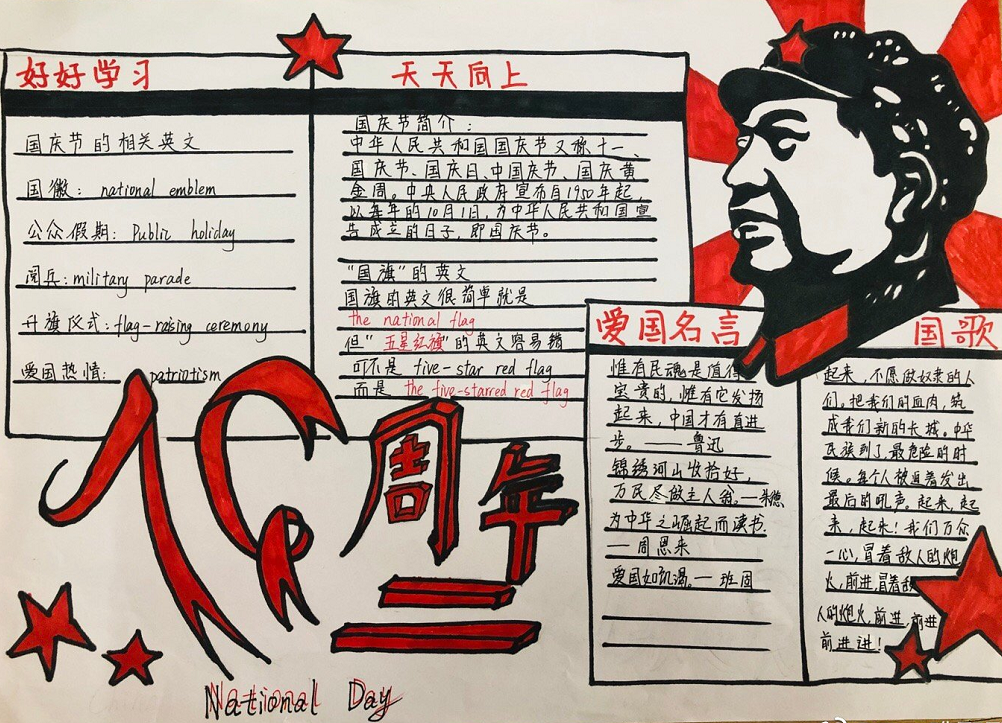 好好学习
国庆节的相关英文
国徽： national emblem
公众假期：Public holiday
阅兵：military parade
升旗仪式：flag-raising ceremony
爱国热情： patriotism
天天向上
国庆节简介：
中华人民共和国国庆节又称十一、
国庆节、国庆日、中国庆节、国庆黄
金周。中央人民政府宣布自1950年起，
以每年的10月1日，为中华人民共和国宣
告成立的日子，即国庆节。
“国旗”的英文
国旗的英文很简单就是
the national flag
但“五星红旗”的英文容易错
可不是 five-star red flag
而是 the five-starred red flag
爱国名言
惟有民魂是值得
宝贵的，惟有它发扬
起来，中国才有真进
步。——鲁迅
锦绣河山收拾好，
万民尽做主人翁.—朱德
为中华之崛起而读书.
—周恩来
爱国如饥渴。—班固
国歌
起来，不愿做奴隶的人
们。把我们的血肉，筑
成我们新的长城。中华
民族到了，最危险的时
候。每个人被迫着发出
最后的吼声。起来，起
来，起来！我们万众
一心，冒着敌人的炮
火，前进，冒着敌
人的炮火，前进，前进
前进进！
周年
National Day